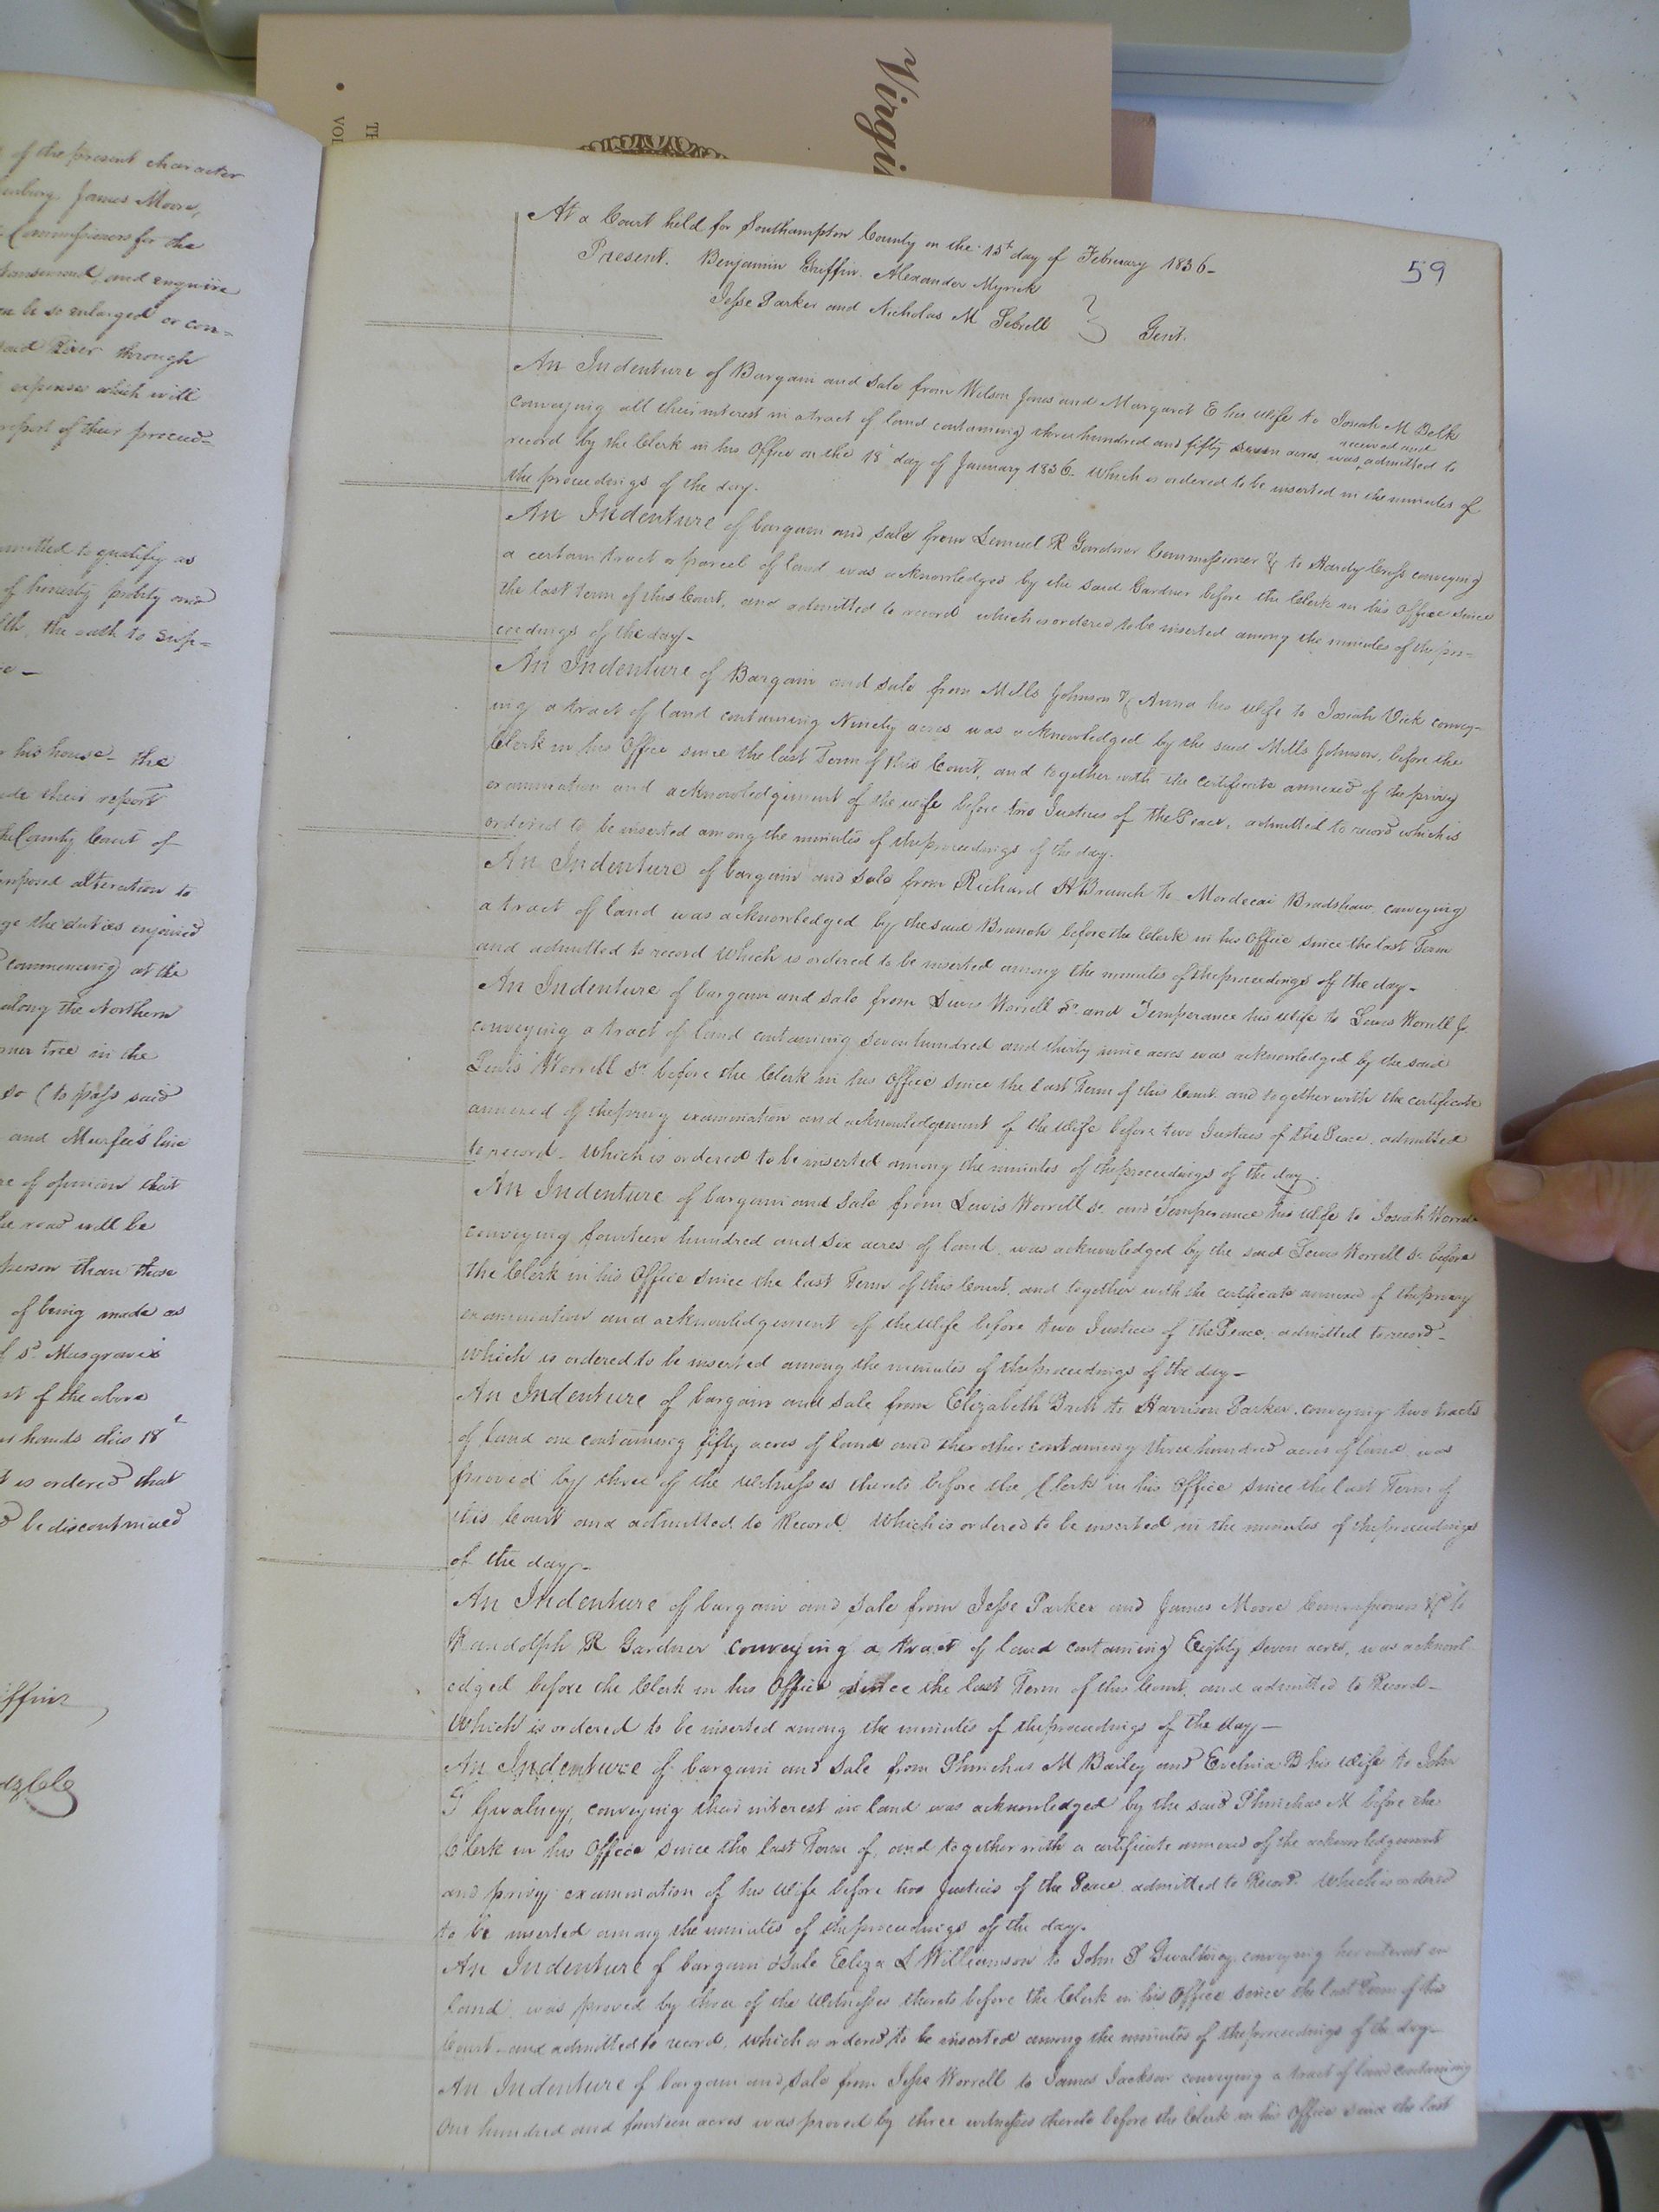 Virgin
TH
VOL
of the present character
James Moore,
Commissioners for the
and enquire
be so enlarged or con=
said River through
expenses which will
report of their proceed=
to qualify as
of honesty probity and
the oath to sup=
his house- the
their report
the County Court of
alteration to
the duties enjoined
commencing at the
along the Northern
tree in the
so (to pass said
and Murfee's line
of opinion that
the road will be
person than those
of being made as
of sd Musgrave's
of the above
hands this 18t
it is ordered that
be discontinued
59
At a Court held for Southampton County on the 15th day of February 1836-
Present. Benjamin Griffin. Alexander Myrick
Jesse Parker and Nicholas M Sebrell } Gent.
An Indenture of Bargain and Sale from Wilson Jones and Margaret E his wife to Josiah M Belk
conveying all their interest in a tract of land containing three hundred and fifty seven acres, was received and admitted to
record by the Clerk in his Office on the 18th day of January 1836- which is ordered to be inserted in the minutes of
the proceedings of the day.
An Indenture of bargain and sale from Lemuel R Gardner Commissioner &c to Hardy Cross conveying
a certain tract or parcel of land was acknowledged by the said Gardner before the Clerk in his Office since
the last term of this Court, and admitted to record which is ordered to be inserted among the minutes of the pro=
ceedings of the day-
An Indenture of Bargain and sale from Mills Johnson & Anna his wife to Josiah Vick convey-
ing a tract of land containing Ninety acres was acknowledged by the said Mills Johnson, before the
Clerk in his Office since the last Term of this Court, and together with the certificate annexed of the privy
examination and acknowledgment of the wife before two Justices of the Peace, admitted to record which is
ordered to be inserted among the minutes of the proceedings of the day.
An Indenture of bargain and sale from Richard H Branch to Mordecai Bradshaw conveying
a tract of land was acknowledged by the said Branch before the Clerk in his Office since the last Term
and admitted to record which is ordered to be inserted among the minutes of the proceedings of the day-
An Indenture of bargain and sale from Lewis Worrell Sr. and Temperance his wife to Lewis Worrell Jr.
conveying a tract of land containing seven hundred and thirty nine acres was acknowledged by the said
Lewis Worrell Sr. before the Clerk in his Office since the last Term of this Court and together with the certificate
annexed of the privy examination and acknowledgement of the wife before two Justices of the Peace, admitted
to record- which is ordered to be inserted among the minutes of the proceedings of the day.
An Indenture of bargain and sale from Lewis Worrell Sr. and Temperance his wife to Josiah Worrell
conveying fourteen hundred and six acres of land, was acknowledged by the said Lewis Worrell Sr before
the Clerk in his Office since the last Term of this Court, and together with the certificate annexed of the privy
examination and acknowledgement of the wife before two Justices of the Peace, admitted to record-
which is ordered to be inserted among the minutes of the proceedings of the day-
An Indenture of bargain and sale from Elizabeth to Harrison Parker, conveying two tracts
of land one containing fifty acres of land and the other containing three hundred acres of land was
proved by three of the witnesses thereto before the Clerk in his Office since the last Term of
this Court and admitted to Record. Which is ordered to be inserted in the minutes of the proceedings
of the day-
An Indenture of bargain and sale from Jesse Parker and James Moore Commissioners &c to
Randolph R Gardner conveying a tract of land containing Eighty seven acres, was acknowl-
edged before the Clerk in his Office since the last Term of this Court, and admitted to Record-
Which is ordered to be inserted among the minutes of the proceedings of the day-
An Indenture of bargain and sale from Phinehas M Bailey and Evelina B his wife to John
T Gwaltney, conveying their interest in land was acknowledged by the said Phinehas M before the
Clerk in his Office since the last Term of, and together with a certificate annexed of the acknowledgement
and privy examination of his wife before two Justices of the Peace admitted to Record. Which is ordered
to be inserted among the minutes of the proceedings of the day.
An Indenture of bargain & sale Eliza L Williamson to John T Gwaltney conveying her interest in
land was proved by three of the witnesses thereto before the Clerk in his Office since the last Term of this
Court and admitted to record, which is ordered to be inserted among the minutes of the proceedings of the day-
An Indenture of bargain and sale from Jesse Worrell to James Jackson conveying a tract of land containing
One hundred and fourteen acres was proved by three witnesses thereto before the Clerk in his Office since the last